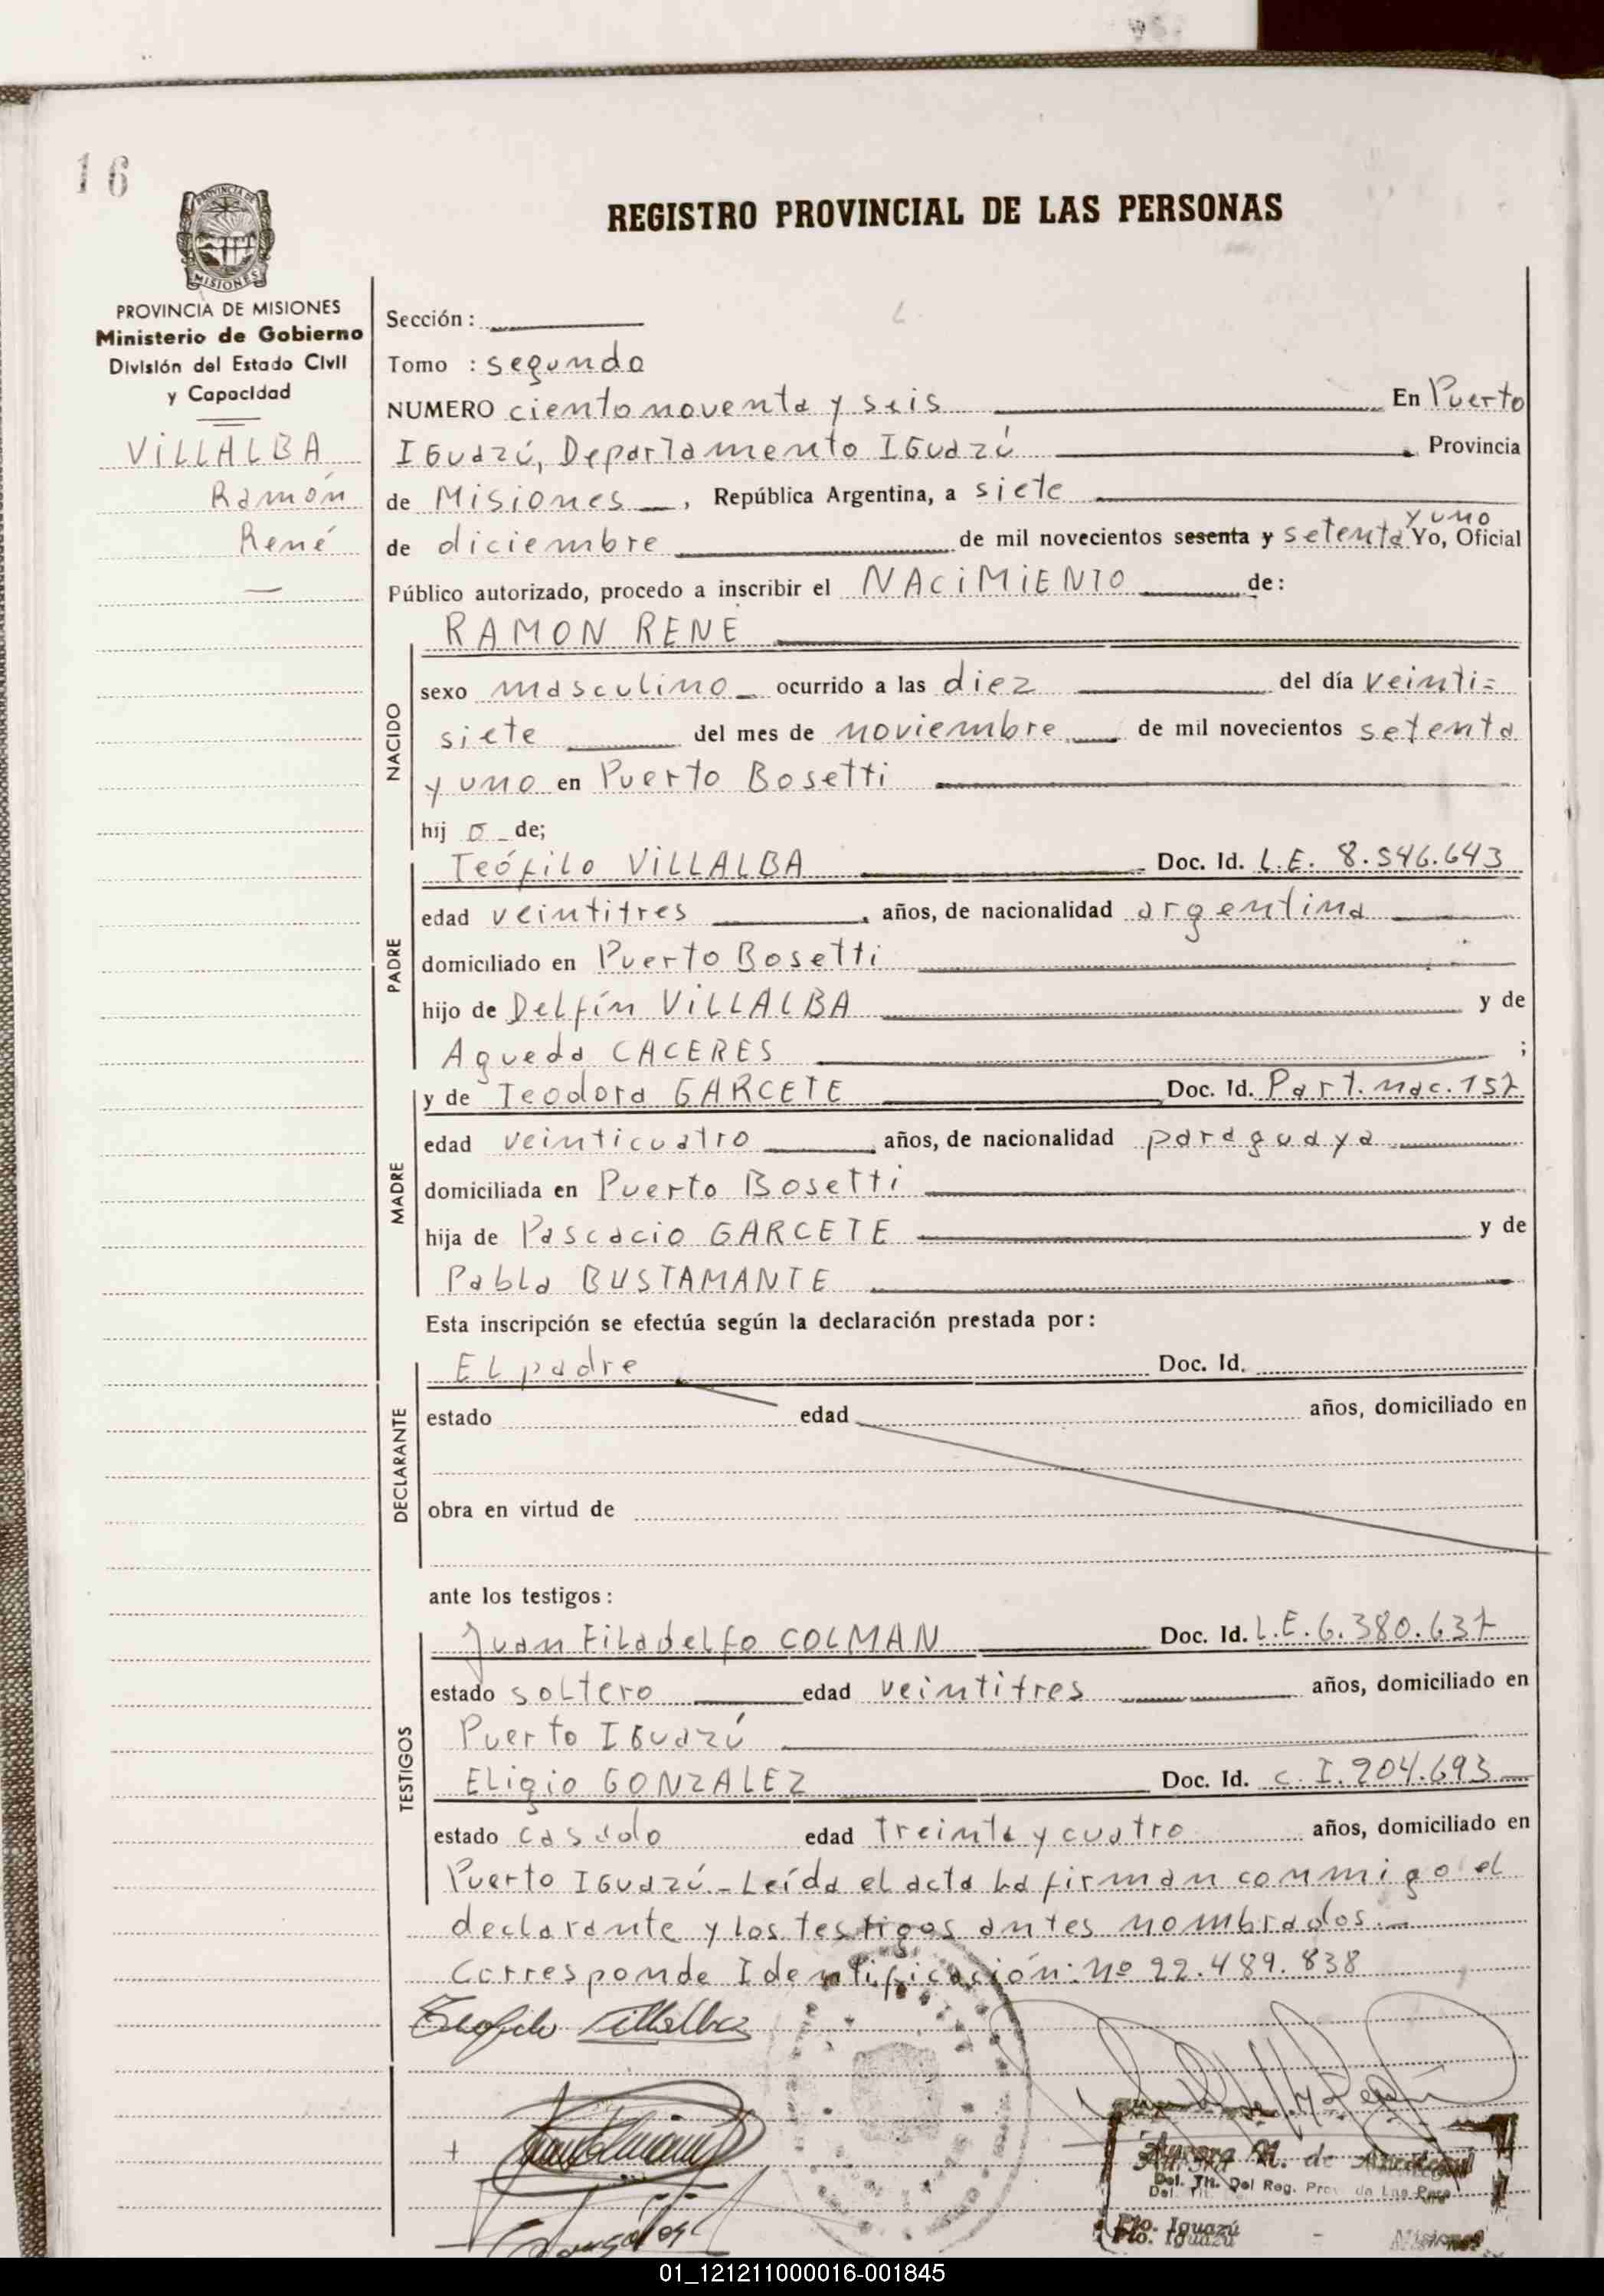 16
PROVINCIA DE MISIONES
REGISTRO PROVINCIAL DE LAS PERSONAS
PROVINCIA DE MISIONES
Ministerio de Gobierno
División del Estado Civil
y Capacidad
VILLALBA
Ramón
René
Sección :
Tomo : segundo
NUMERO ciento noventa y seis En Puerto
IGuazú, Departamento IGuazú Provincia
de Misiones, República Argentina, a siete
de diciembre de mil novecientos sesenta y setenta y uno Yo, Oficial
Público autorizado, procedo a inscribir el NACIMIENTO de:
RAMON RENE
NACIDO
sexo masculino ocurrido a las diez del día veinti=
siete del mes de noviembre de mil novecientos setenta
y uno en Puerto Bosetti
hij o de;
PADRE
Teófilo VILLALBA Doc. Id. L.E. 8.546.643
edad veintitres, años, de nacionalidad argentina
domiciliado en Puerto Bosetti
hijo de Delfín VILLALBA y de
Agueda CACERES ;
MADRE
y de Teodora GARCETE Doc. Id. Part. nac. 157
edad veinticuatro, años, de nacionalidad paraguaya
domiciliada en Puerto Bosetti
hija de Pascacio GARCETE y de
Pabla BUSTAMANTE
Esta inscripción se efectúa según la declaración prestada por:
DECLARANTE
El padre Doc. Id.
estado edad años, domiciliado en
obra en virtud de
ante los testigos:
TESTIGOS
Juan Filadelfo COLMAN Doc. Id. L.E. 6.380.637
estado soltero edad veintitres años, domiciliado en
Puerto IGuazú
Eligio GONZALEZ Doc. Id. C.I. 204.693
estado casado edad treinta y cuatro años, domiciliado en
Puerto IGuazú.- Leída el acta la firman conmigo el
declarante y los testigos antes nombrados.-
Corresponde Identificación: Nº 22.489.838
Teofilo Villalba
Aurora M. de
Del. Tit. Del Reg. Prov. de Las Pers.
Pto. Iguazú - Misiones
01_121211000016-001845